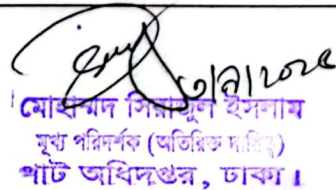 মোহাম্মদ সিরাজুল ইসলাম
মূখ্য পরিদর্শক (অতিরিক্ত দায়িত্ব)
পাট অধিদপ্তর, ঢাকা।